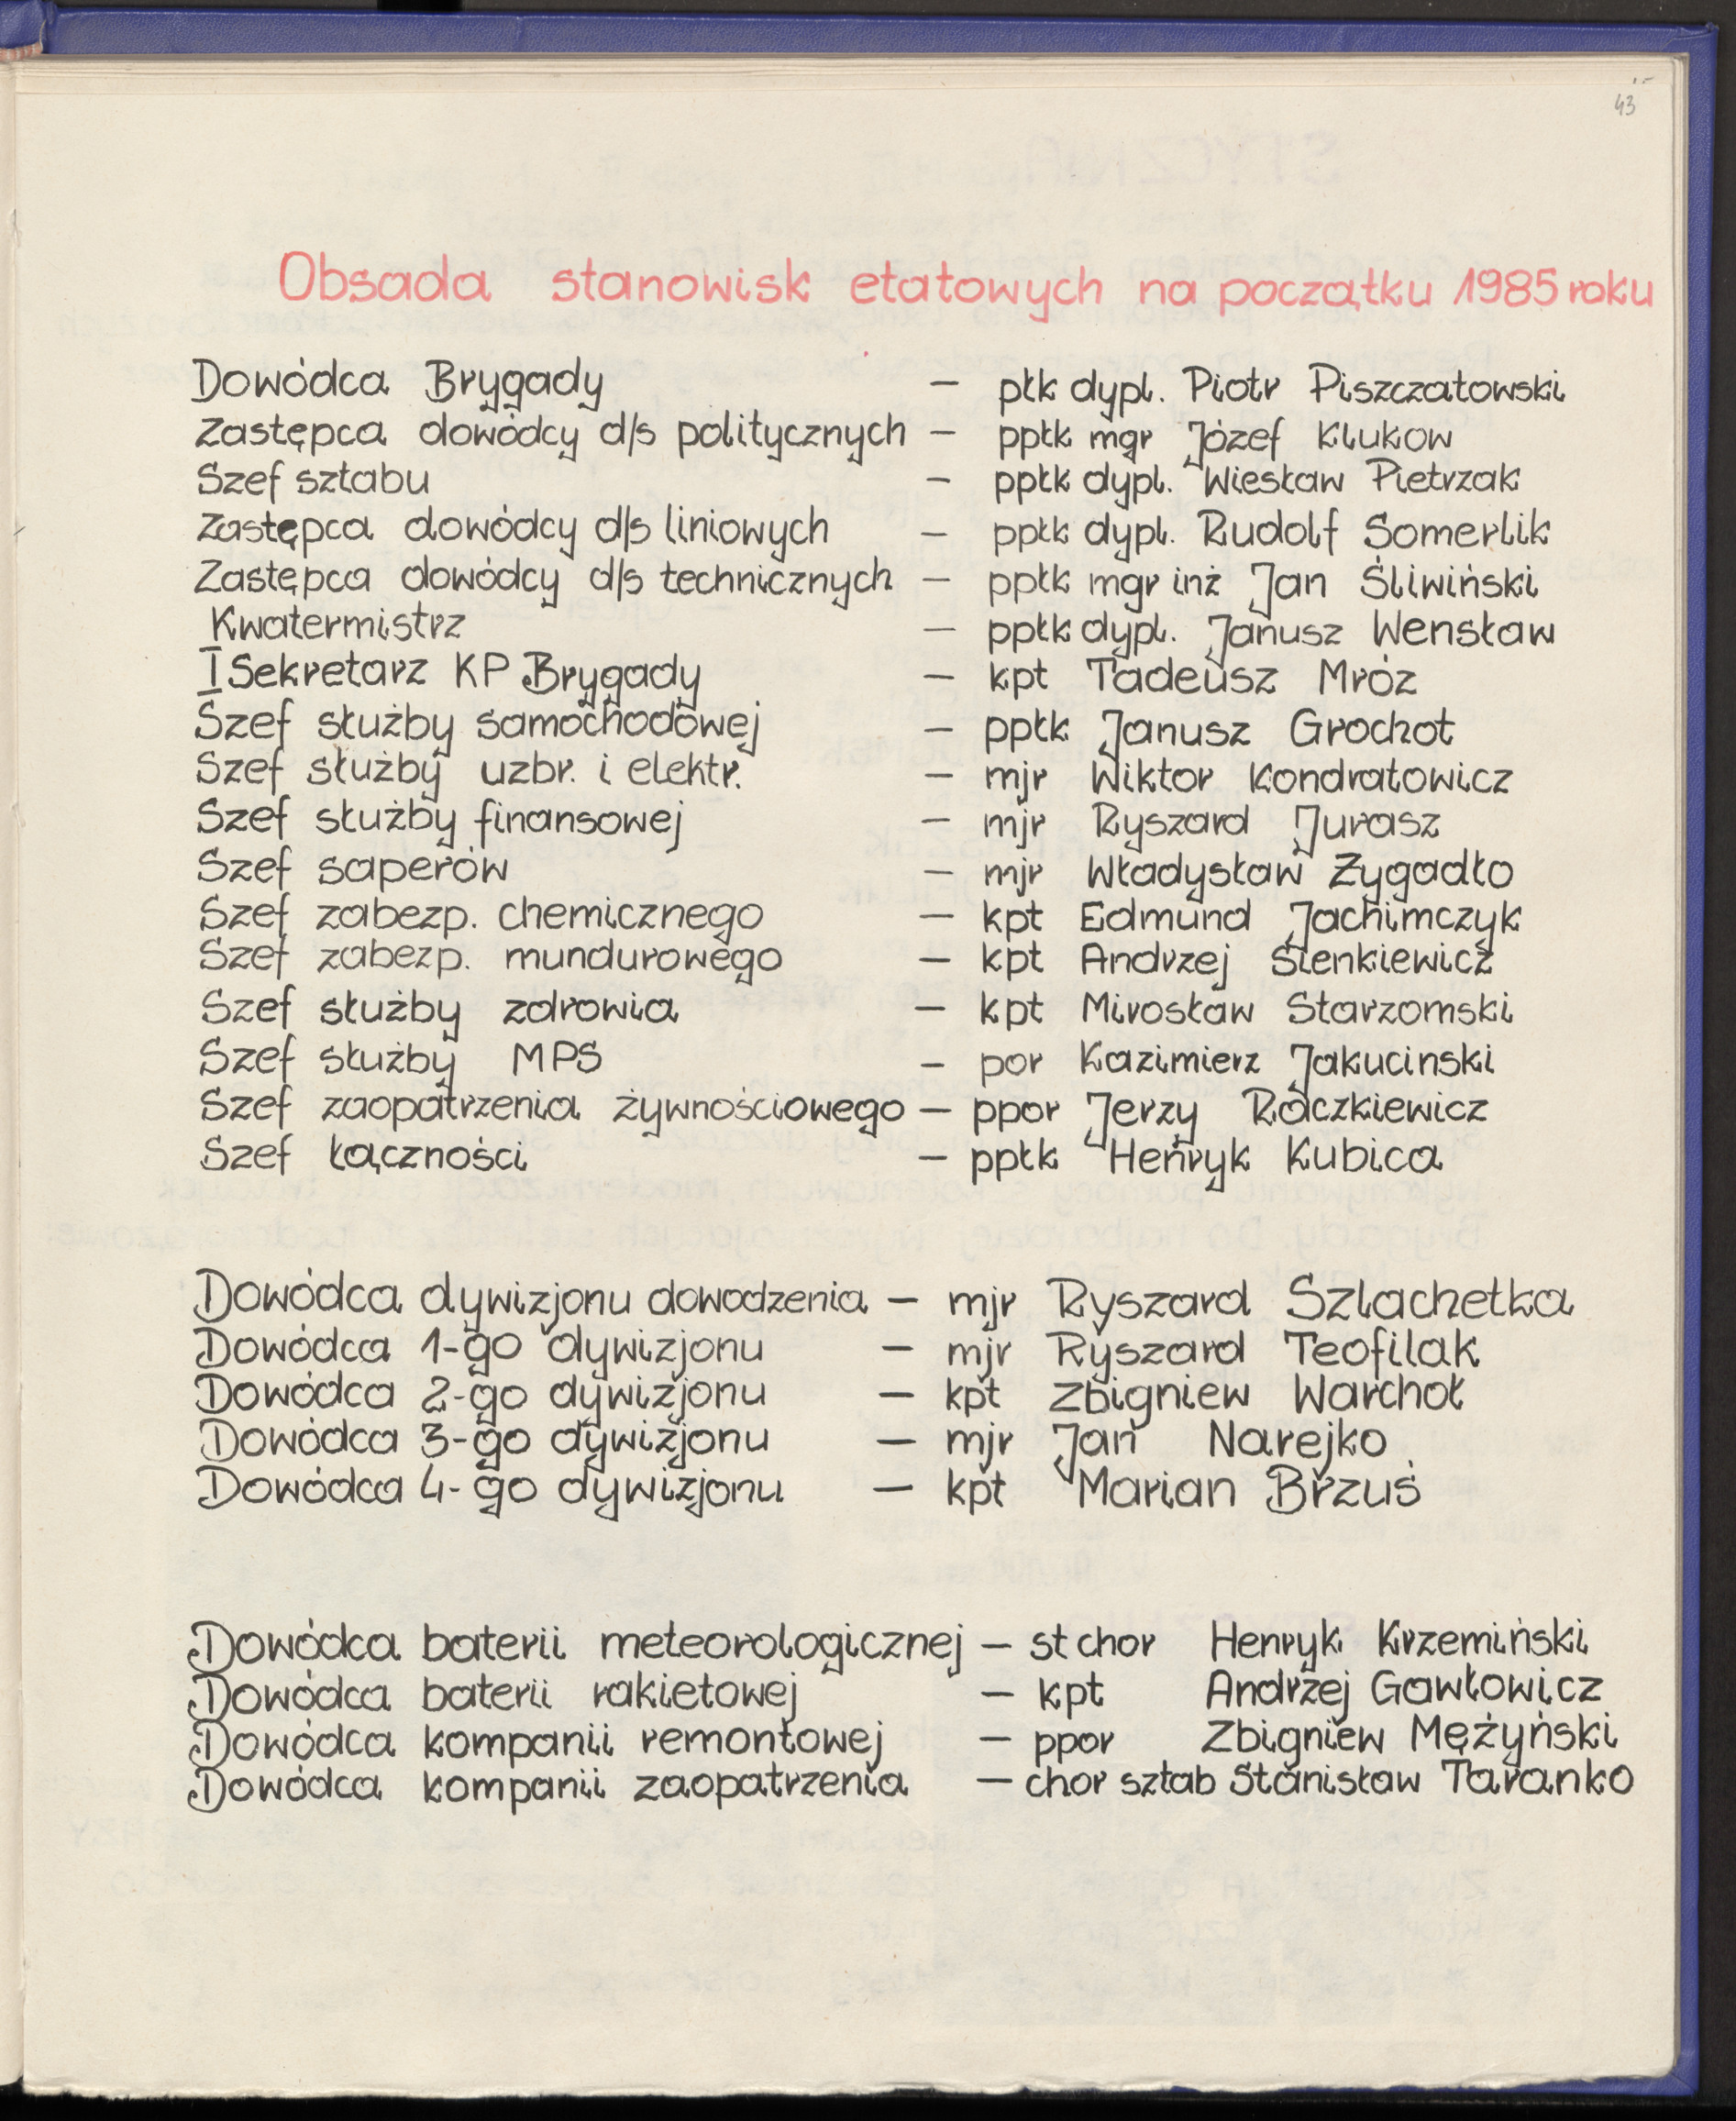 43
Obsada stanowisk etatowych na początku 1985 roku
Dowódca Brygady – płk dypl. Piotr Piszczatowski
Zastępca dowódcy d/s politycznych – ppłk mgr Józef Klukow
Szef sztabu – ppłk dypl. Wiesław Pietrzak
Zastępca dowódcy d/s liniowych – ppłk dypl. Rudolf Somerlik
Zastępca dowódcy d/s technicznych – ppłk mgr inż Jan Śliwiński
Kwatermistrz – ppłk dypl. Janusz Wensław
I Sekretarz KP Brygady – kpt Tadeusz Mróz
Szef służby samochodowej – ppłk Janusz Grochot
Szef służby uzbr. i elektr. – mjr Wiktor Kondratowicz
Szef służby finansowej – mjr Ryszard Jurasz
Szef saperów – mjr Władysław Zygadło
Szef zabezp. chemicznego – kpt Edmund Jachimczyk
Szef zabezp. mundurowego – kpt Andrzej Sienkiewicz
Szef służby zdrowia – kpt Mirosław Starzomski
Szef służby MPS – por Kazimierz Jakucinski
Szef zaopatrzenia żywnościowego – ppor Jerzy Raczkiewicz
Szef łączności – ppłk Henryk Kubica
Dowódca dywizjonu dowodzenia – mjr Ryszard Szlachetka
Dowódca 1-go dywizjonu – mjr Ryszard Teofilak
Dowódca 2-go dywizjonu – kpt Zbigniew Warchoł
Dowódca 3-go dywizjonu – mjr Jan Narejko
Dowódca 4-go dywizjonu – kpt Marian Brzuś
Dowódca baterii meteorologicznej – st chor Henryk Krzemiński
Dowódca baterii rakietowej – kpt Andrzej Gawłowicz
Dowódca kompanii remontowej – ppor Zbigniew Mężyński
Dowódca kompanii zaopatrzenia – chor sztab Stanisław Taranko